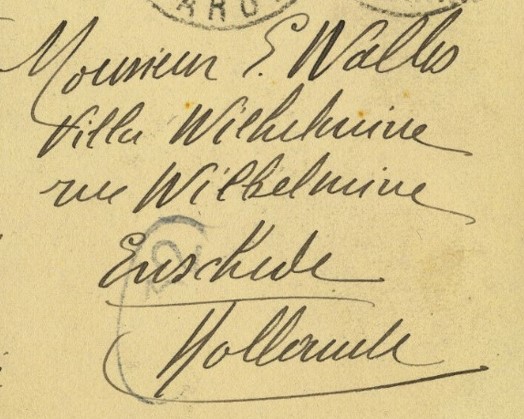 Monsieur E. Walles
Villa Wilhelmine
rue Wilhelmine
Enschede
Hollande